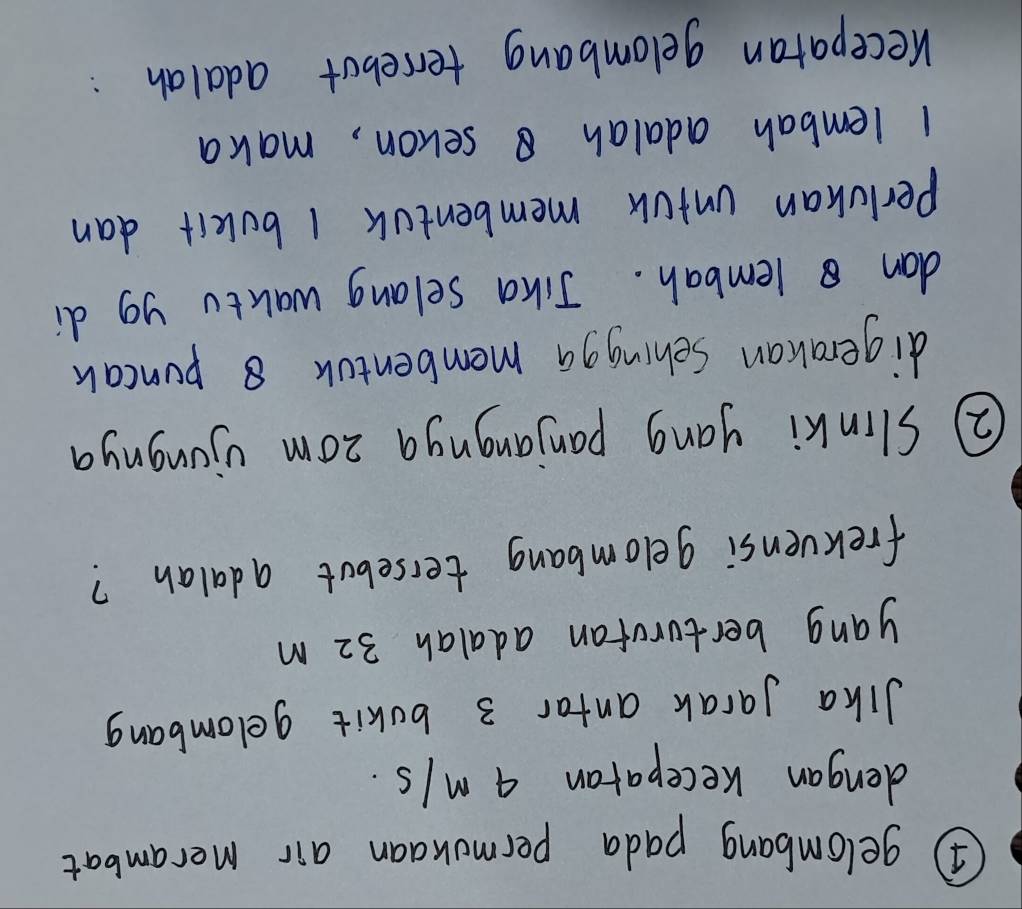 ① gelombang pada permukaan air merambat
dengan kecepatan 4 m/s.
Jika jarak antar 3 bukit gelombang
yang berturutan adalah 32 m
frekuensi gelombang tersebut adalah ?
② Slinki yang panjangnya 20m ujungnya
digerakan sehingga membentuk 8 puncak
dan 8 lembah. Jika selang waktu yg di
perlukan untuk membentuk 1 bukit dan
1 lembah adalah 8 sekon, maka
kecepatan gelombang tersebut adalah :